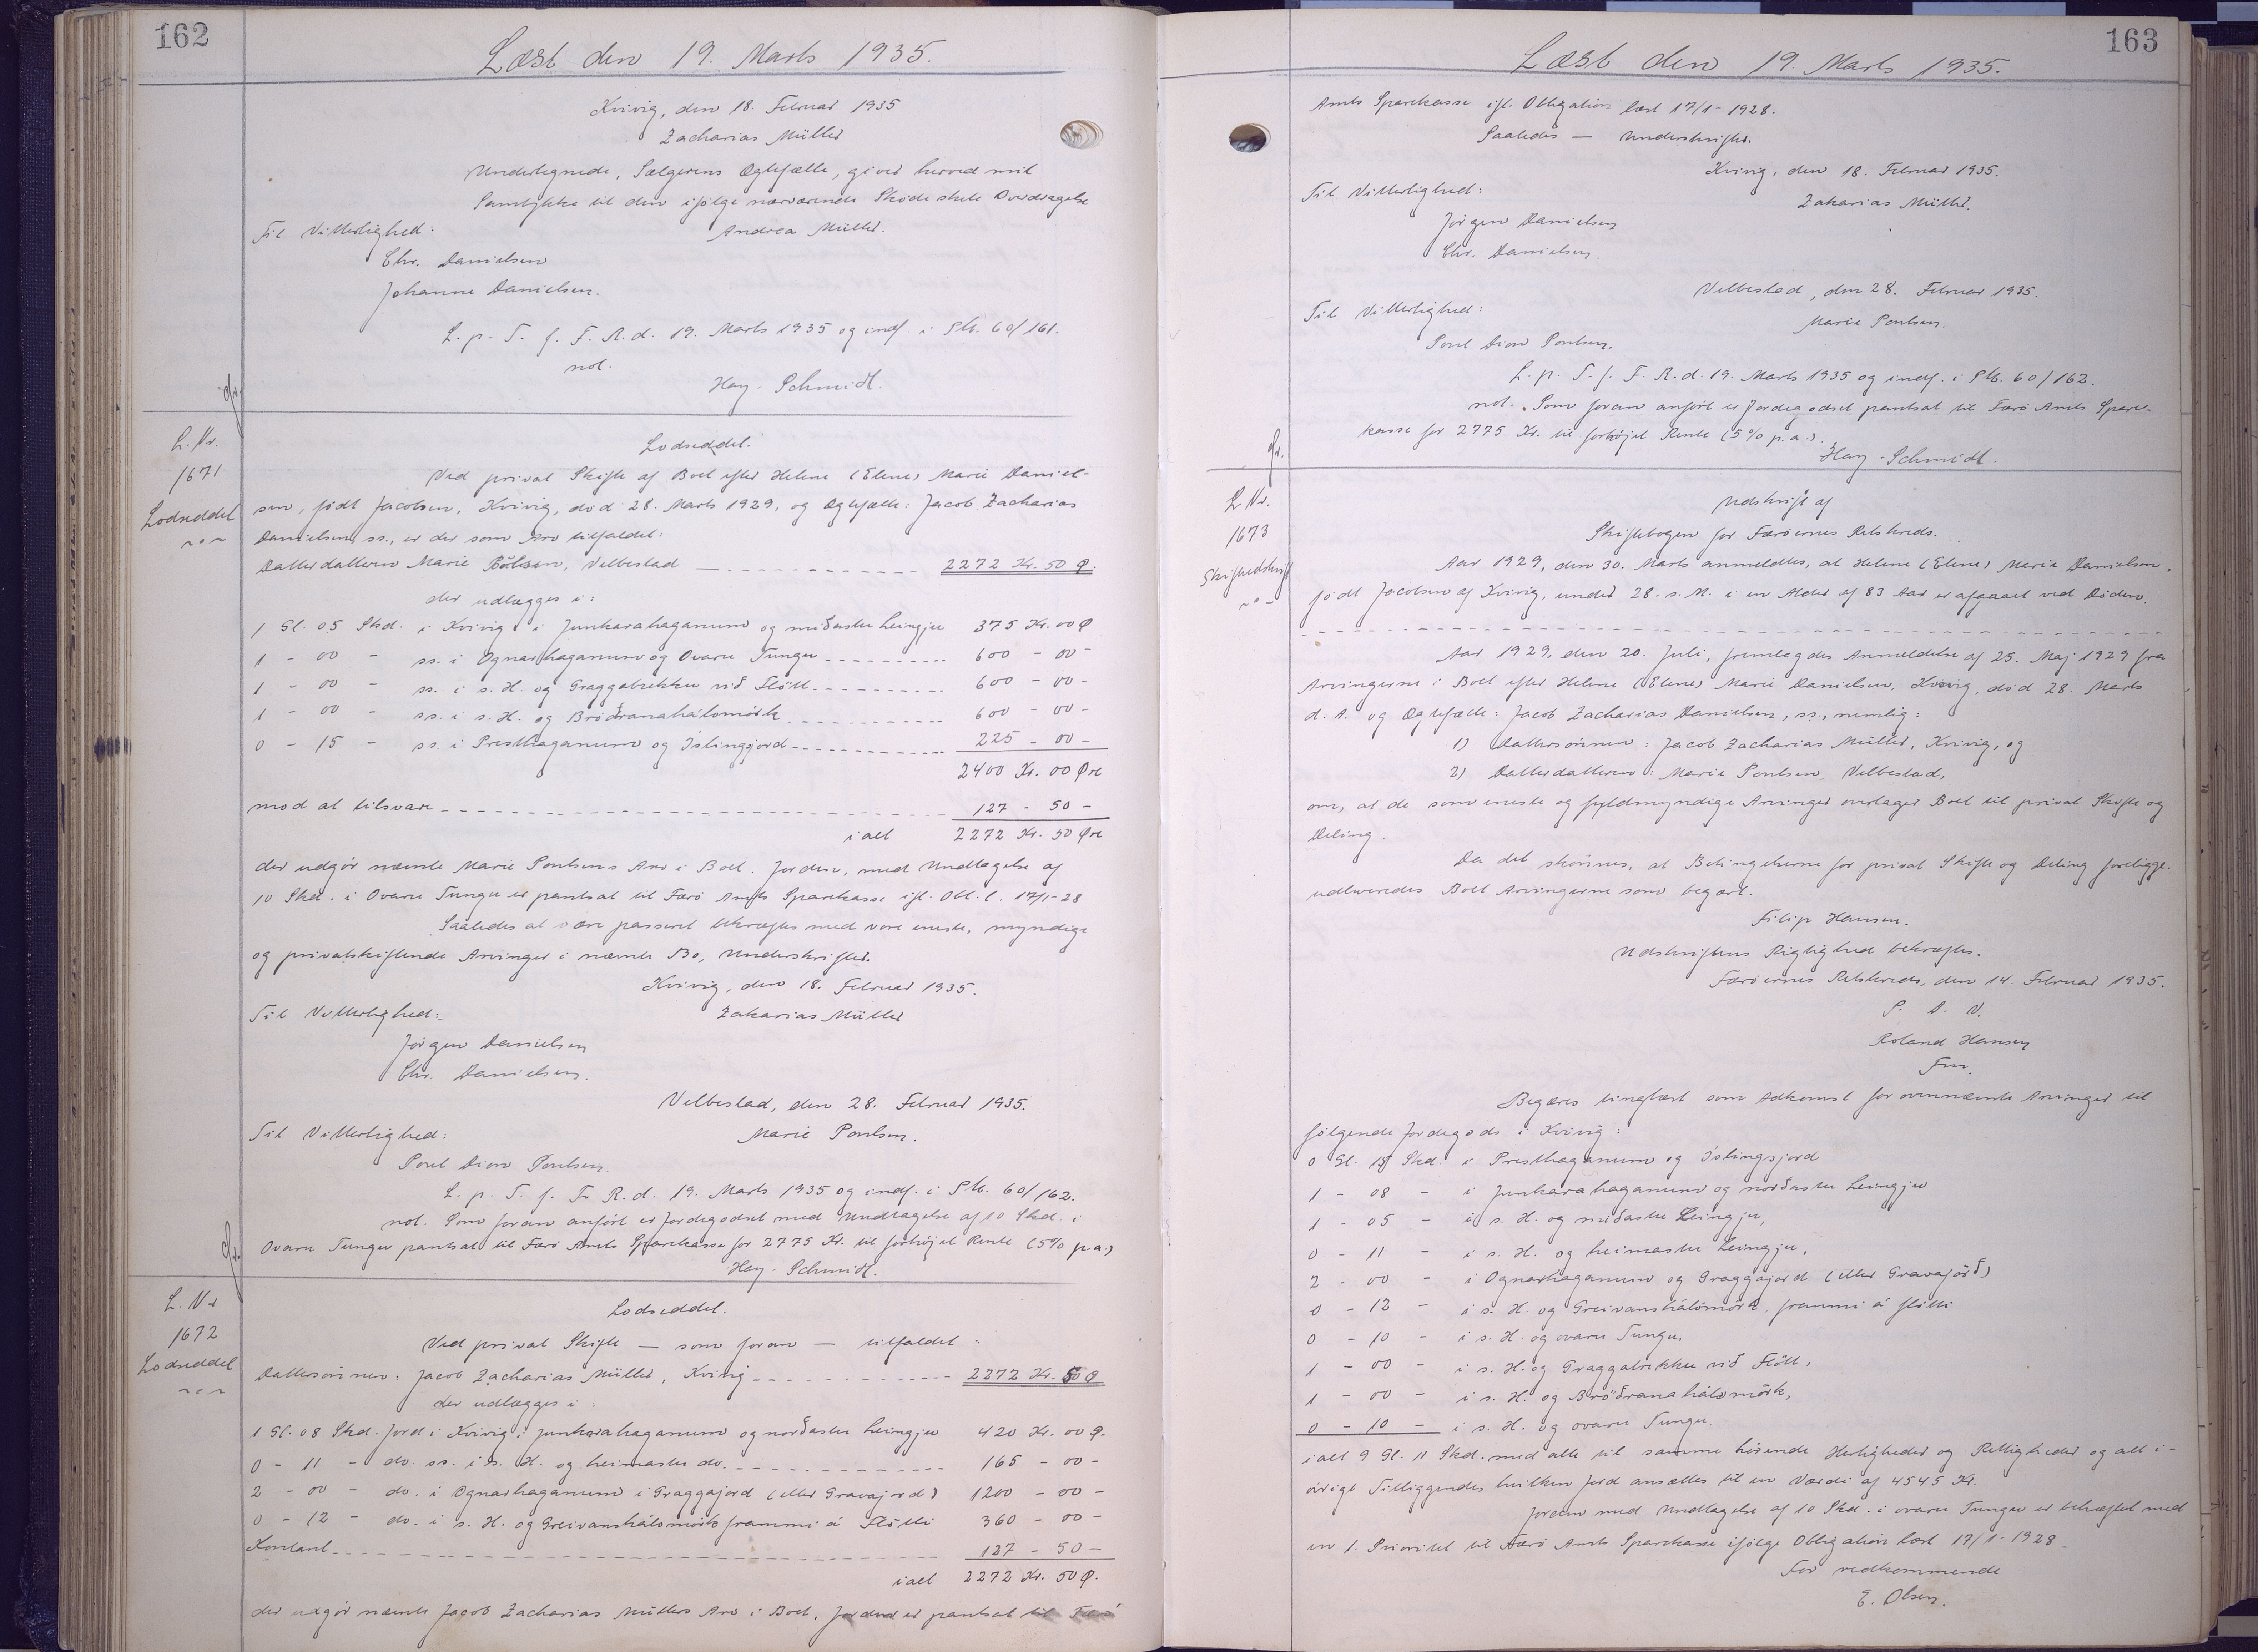 162
Læst den 19. Marts 1935.
Kvivig, den 18. Februar 1935
Zacharias Müller
Undertegnede, Sælgerens Ægtefælle, giver herved mit
Samtykke til den ifølge nærværende Skøde skete Overdragelse
Til Vitterlighed:
Andrea Müller.
Chr. Danielsen
Johanne Danielsen.
L. p. T. f. F. R. d. 19. Marts 1935 og indf. i Sk. 60/161.
not.
Hay-Schmidt.
L. Nr.
1671
Lodseddel
Lodseddel.
Ved privat Skifte af Boet efter Helene (Elene) Marie Daniel-
sen, født Jacobsen, Kvivig, død 28. Marts 1929, og Ægtefælle: Jacob Zacharias
Danielsen, ss., er der som Arv tilfaldet:
Datterdatteren Marie Poulsen, Velbestad 2272 Kr. 50 Ø.
der udlægges i:
1 Gl. 05 Skd. i Kvivig i Junkarahaganum og miðastu Leingju 375 Kr. 00 Ø
1 - 00 - ss. i Ognarhaganum og Ovaru Tungu 600 - 00 -
1 - 00 - ss. i s. H. og Graggabrekku við Flótt 600 - 00 -
1 - 00 - ss. i s. H. og Brøðranahálsmørk 600 - 00 -
0 - 15 - ss. i Presthaganum og Íslingjord 225 - 00 -
2400 Kr. 00 Øre
mod at tilsvare 127 - 50 -
i alt 2272 Kr. 50 Øre
der udgør nævnte Marie Poulsens Arv i Boet. Jorden, med Undtagelse af
10 Skd. i Ovaru Tungu er pantsat til Færø Amts Sparekasse ifl. Obl. l. 17/1-28
Saaledes at være passeret bekræftes med vore eneste, myndige
og privatskiftende Arvinger i nævnte Bo, Underskrifter.
Kvivig, den 18. Februar 1935.
Til Vitterlighed:
Zakarias Müller
Jørgen Danielsen
Chr. Danielsen.
Velbestad, den 28. Februar 1935.
Til Vitterlighed:
Marie Poulsen.
Poul Poulsen.
L. p. T. f. F. R. d. 19. Marts 1935 og indf. i Sk. 60/162.
not. Som foran anført er Jordegodset med Undtagelse af 10 Skd. i
Ovaru Tungu pantsat til Færø Amts Sparekasse for 2775 Kr. til forhøjet Rente (5% p.a.)
Hay-Schmidt.
L. Nr
1672
Lodseddel
Lodseddel.
Ved privat Skifte — som foran — tilfaldet:
Dattersønnen: Jacob Zacharias Müller, Kvivig 2272 Kr. 50 Ø
der udlægges i:
1 Gl. 08 Skd. Jord i Kvivig i Junkarahaganum og norðastu Leingju 420 Kr. 00 Ø.
0 - 11 - do. ss. i s. H. og heimastu do. 165 - 00 -
2 - 00 - do. i Ognarhaganum i Graggajord (eller Gravajord) 1200 - 00 -
0 - 12 - do. i s. H. og Greivanshálsmørk frammi á Fløtti 360 - 00 -
Kontant 127 - 50 -
i alt 2272 Kr. 50 Ø.
der udgør nævnte Jacob Zacharias Müllers Arv i Boet, Jorden er pantsat til Færø
163
Læst den 19. Marts 1935.
Amts Sparekasse ifl. Obligation læst 17/1-1928.
Saaledes — Underskrifter.
Kvivig, den 18. Februar 1935.
Til Vitterlighed:
Zakarias Müller.
Jørgen Danielsen
Chr. Danielsen.
Velbestad, den 28. Februar 1935.
Til Vitterlighed:
Marie Poulsen.
Poul Poulsen.
L. p. T. f. F. R. d. 19. Marts 1935 og indf. i Sk. 60/162.
not. Som foran anført er Jordegodset pantsat til Færø Amts Spare-
kasse for 2775 Kr. til forhøjet Rente (5% p.a.).
Hay-Schmidt.
L. Nr.
1673
Skifteudskrift
Udskrift af
Skiftebogen for Færøernes Retskreds.
Aar 1929, den 30. Marts anmeldtes, at Helene (Elene) Marie Danielsen,
født Jacobsen af Kvivig, under 28. s. M. i en Alder af 83 Aar er afgaaet ved Døden.
Aar 1929, den 20. Juli, fremlagdes Anmeldelse af 25. Maj 1929 fra
Arvingerne i Boet efter Helene (Elene) Marie Danielsen, Kvivig, død 28. Marts
d. A. og Ægtefælle: Jacob Zacharias Danielsen, ss., nemlig:
1) Dattersønnen: Jacob Zacharias Müller, Kvivig, og
2) Datterdatteren: Marie Poulsen, Velbestad,
om, at de som eneste og fuldmyndige Arvinger overtager Boet til privat Skifte og
Deling.
Da det skønnes, at Betingelserne for privat Skifte og Deling foreligge.
udleveredes Boet Arvingerne som begært.
Filip Hansen.
Udskriftens Rigtighed bekræftes.
Færøernes Retskreds, den 14. Februar 1935.
P. D. V.
Roland Hansen
Fm.
Begæres tinglæst som Adkomst for ovennævnte Arvinger til
følgende Jordegods i Kvivig:
0 Gl. 15 Skd. i Presthaganum og Íslingsjord
1 - 08 - i Junkarahaganum og norðastu Leingju
1 - 05 - i s. H. og miðastu Leingju,
0 - 11 - i s. H. og heimastu Leingju,
2 - 00 - i Ognarhaganum og Graggajord (eller Gravajörð)
0 - 12 - i s. H. og Greivanshálsmörk, frammi á fløtti
0 - 10 - i s. H. og ovaru Tungu,
1 - 00 - i s. H. og Graggabrekku við Flött,
1 - 00 - i s. H. og Brøðranahálsmörk,
0 - 10 - i s. H. og ovaru Tungu.
i alt 9 Gl. 11 Skd. med alle til samme hørende Herligheder og Rettigheder og alt i-
øvrigt Tilliggendes hvilken Jord ansættes til en Værdi af 4545 Kr.
Jorden med Undtagelse af 10 Skd. i ovaru Tungu er behæftet med
en 1. Prioritet til Færø Amts Sparekasse ifølge Obligation læst 17/1-1928.
For vedkommende
E. Olsen.